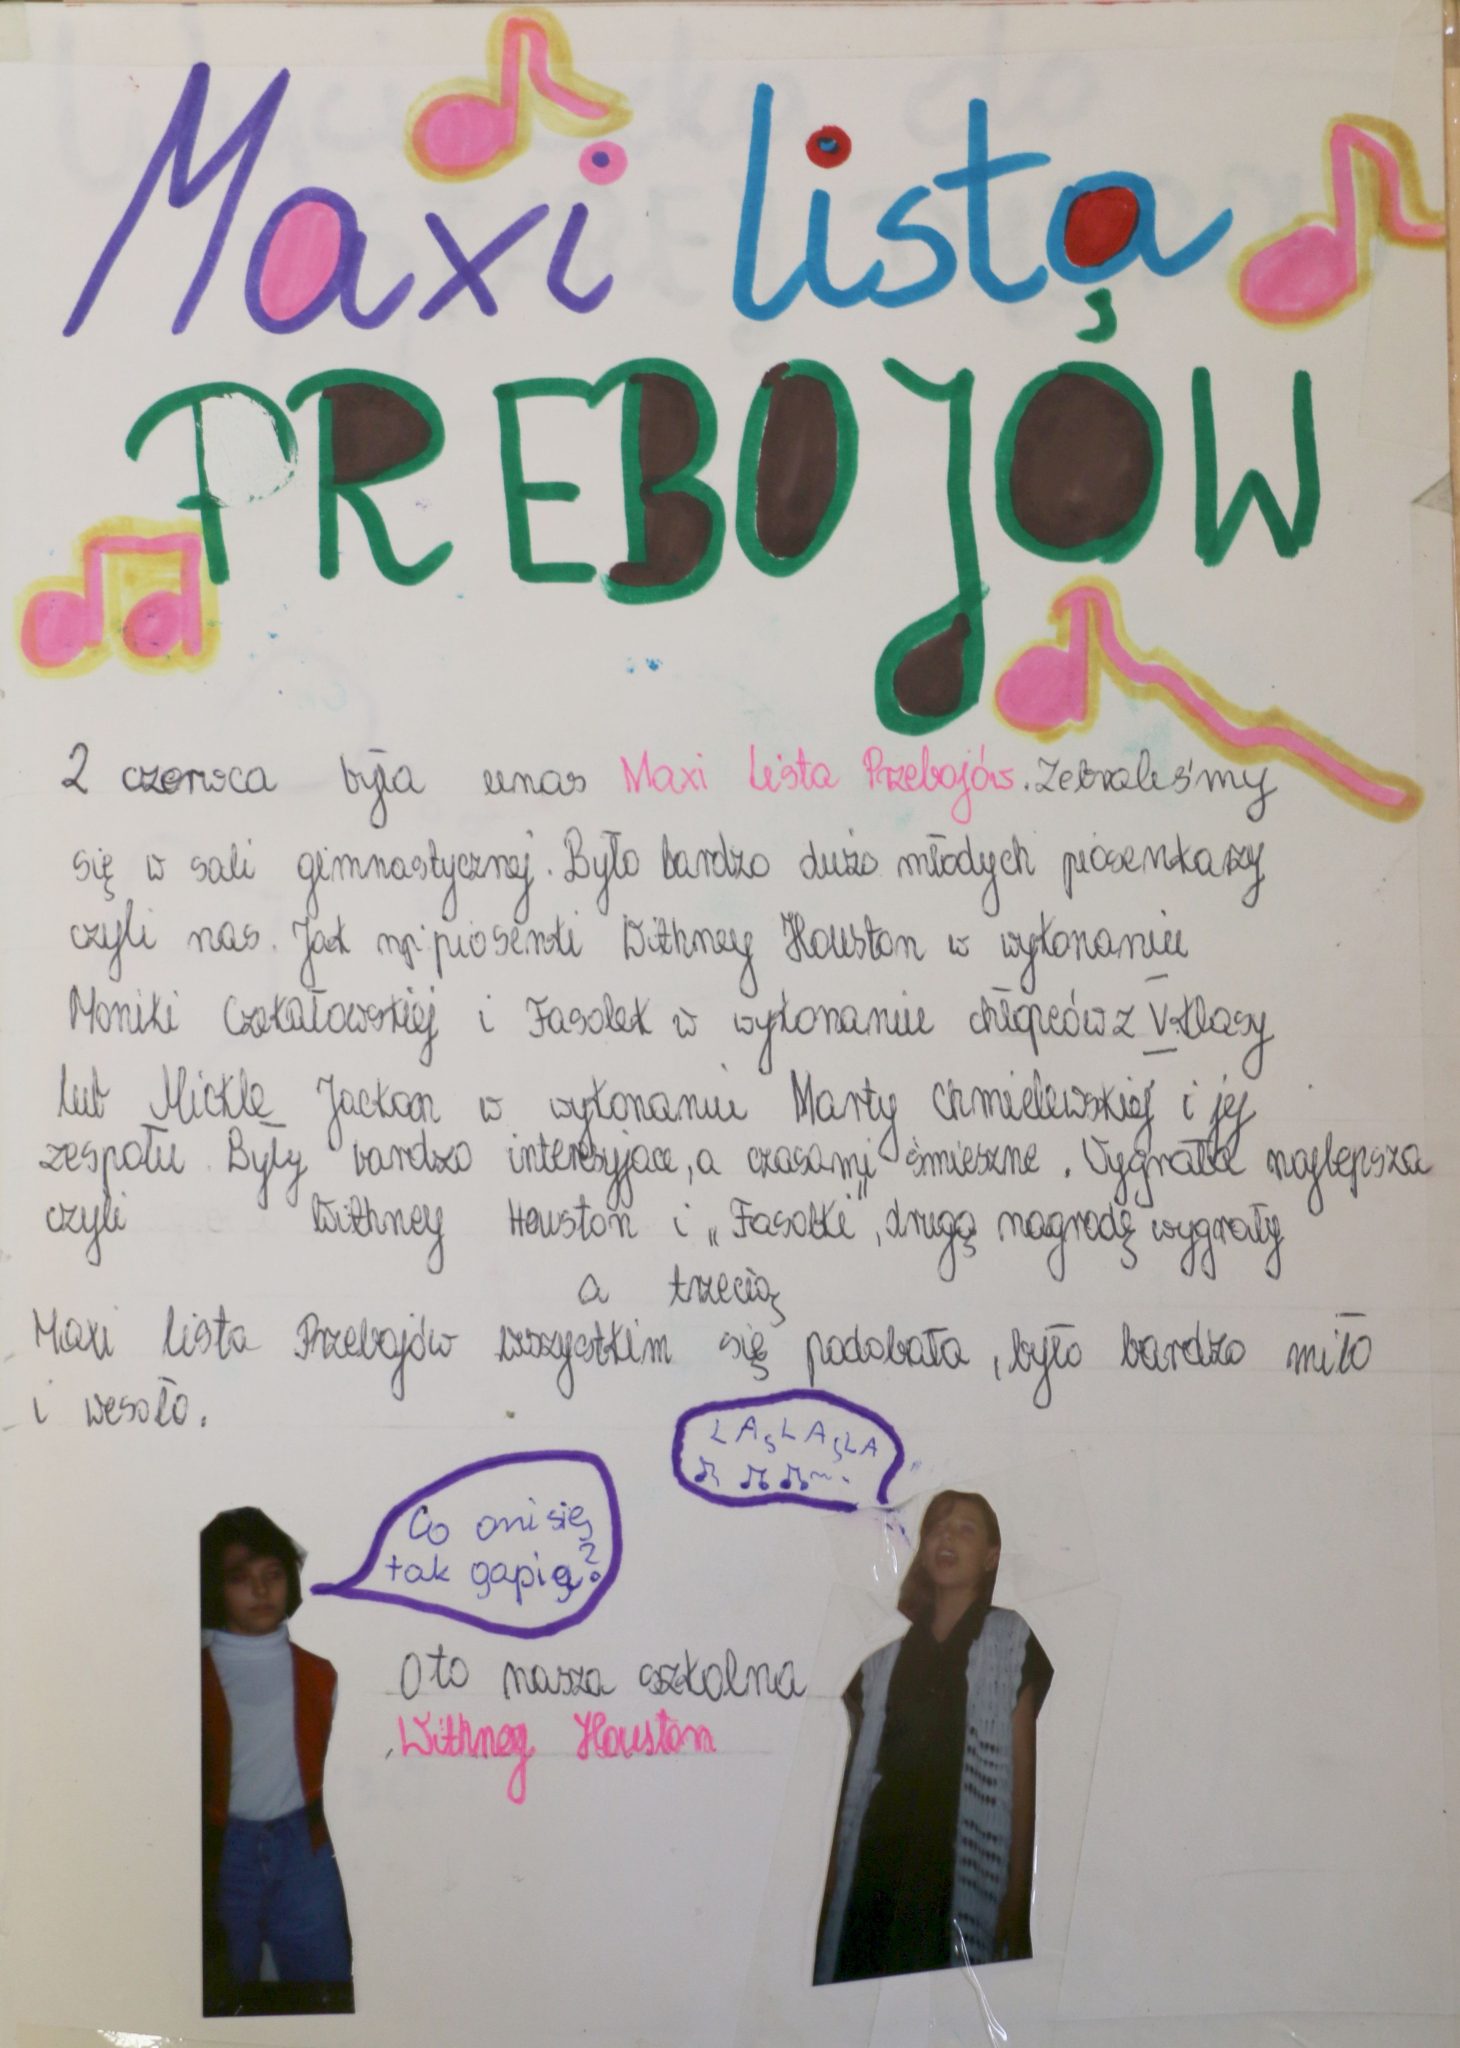 Maxi lista
PREBOJÓW
2 czerwca była unas Maxi Lista Przebojów. Zebraliśmy
się w sali gimnastycznej. Było bardzo dużo młodych piosenkaszy
czyli nas. Jak np. piosenki Withney Houston w wykonaniu
Moniki Czekałowskiej i Fasolek w wykonaniu chłopców z V klasy
lub Mickle Jackon w wykonaniu Marty Chmielewskiej i jej
zespołu. Były bardzo interesyjące, a czasami śmieszne. Wygrała najlepsza
czyli Withney Houston i „Fasolki”, drugą nagrodę wygrały
a trzecią
Maxi lista Przebojów wszystkim się podobała, było bardzo miło
i wesoło.
LA, LA, LA
Co oni się
tak gapią?
Oto nasza szkolna
Withney Houston